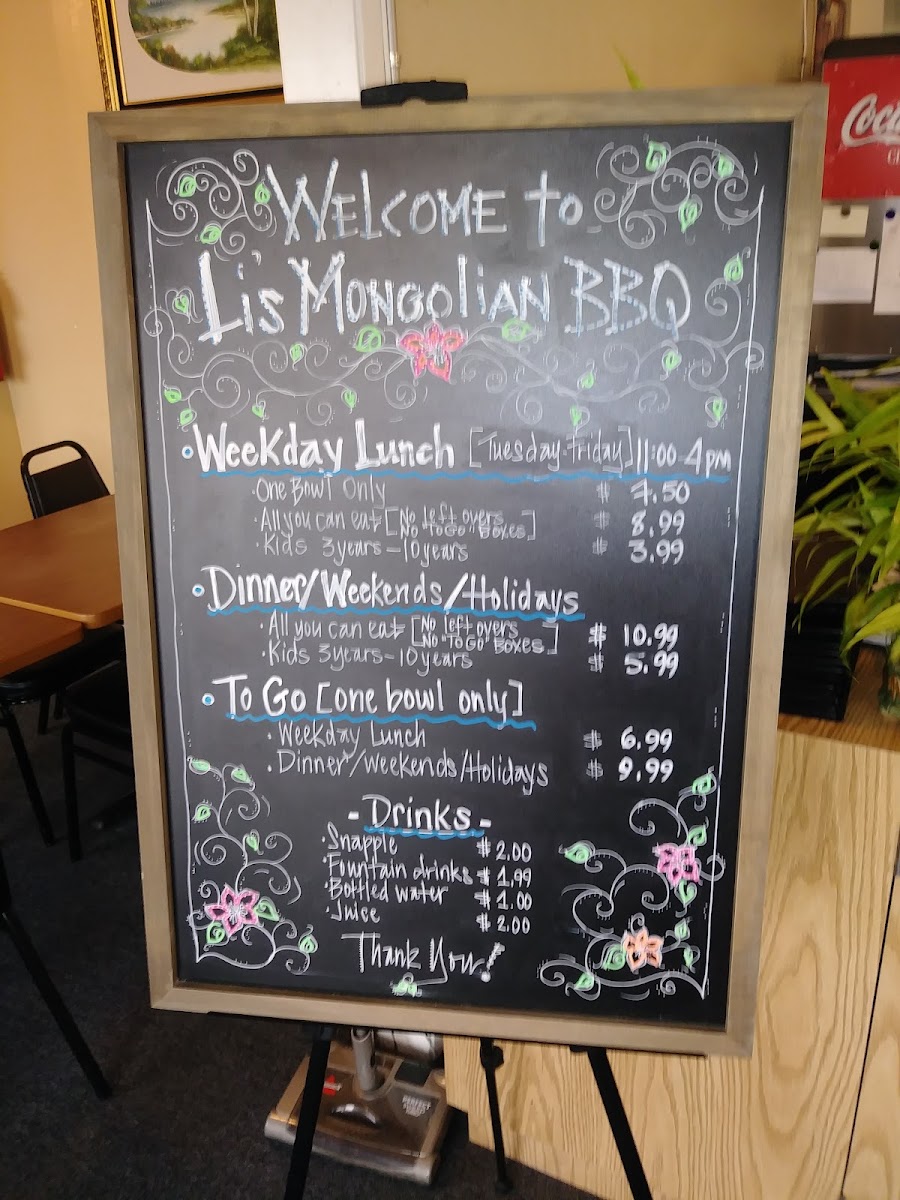 Welcome to
Li's Mongolian BBQ
Coca
• Weekday Lunch [Tuesday-Friday] 11:00-4pm
• One Bowl Only $ 7.50
• All you can eat [No left overs $ 8.99
No "To Go" Boxes]
• Kids 3years-10years $ 3.99
• Dinner/Weekends/Holidays
• All you can eat [No left overs $ 10.99
No "To Go" Boxes]
• Kids 3years-10years $ 5.99
• To Go [one bowl only]
• Weekday Lunch $ 6.99
• Dinner/Weekends/Holidays $ 9.99
- Drinks -
• Snapple $ 2.00
• Fountain drinks $ 1.99
• Bottled water $ 1.00
• Juice $ 2.00
Thank You!